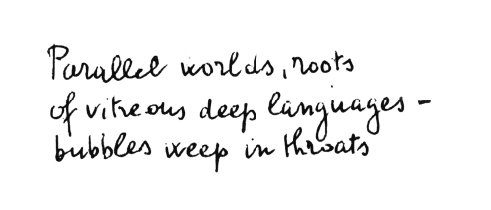 Parallel worlds, roots
of vitreous deep languages -
bubbles weep in throats